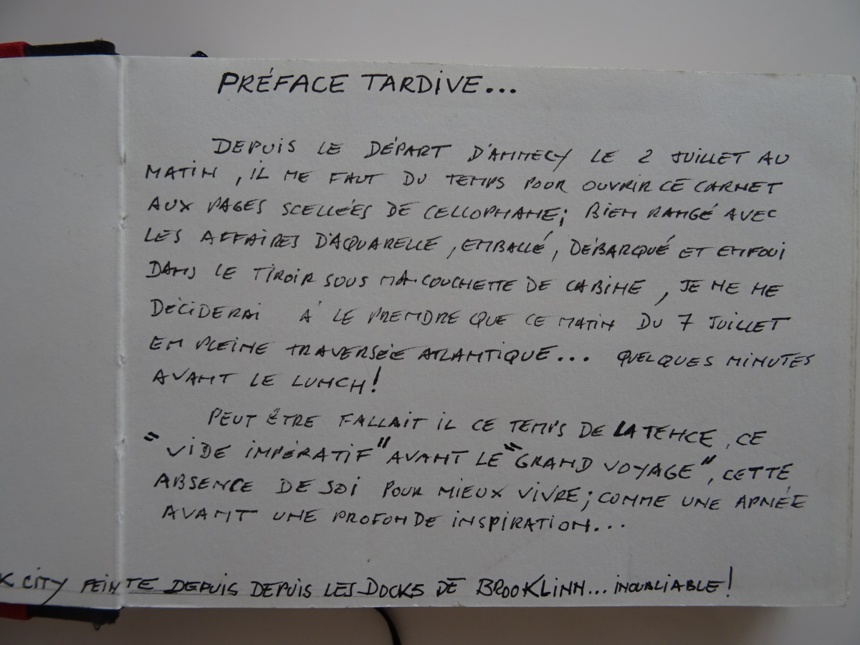 PRÉFACE TARDIVE...
DEPUIS LE DÉPART D'ANNECY LE 2 JUILLET AU
MATIN, IL ME FAUT DU TEMPS POUR OUVRIR CE CARNET
AUX PAGES SCELLÉES DE CELLOPHANE; BIEN RANGÉ AVEC
LES AFFAIRES D'AQUARELLE, EMBALLÉ, DÉBARQUÉ ET ENFOUI
DANS LE TIROIR SOUS MA COUCHETTE DE CABINE, JE NE ME
DÉCIDERAI À LE PRENDRE QUE CE MATIN DU 7 JUILLET
EN PLEINE TRAVERSÉE ATLANTIQUE... QUELQUES MINUTES
AVANT LE LUNCH!
PEUT ÊTRE FALLAIT IL CE TEMPS DE LATENCE, CE
"VIDE IMPÉRATIF" AVANT LE "GRAND VOYAGE", CETTE
ABSENCE DE SOI POUR MIEUX VIVRE; COMME UNE APNÉE
AVANT UNE PROFONDE INSPIRATION...
K CITY PEINTE DEPUIS DEPUIS LES DOCKS DE BROOKLINN... INOUBLIABLE!